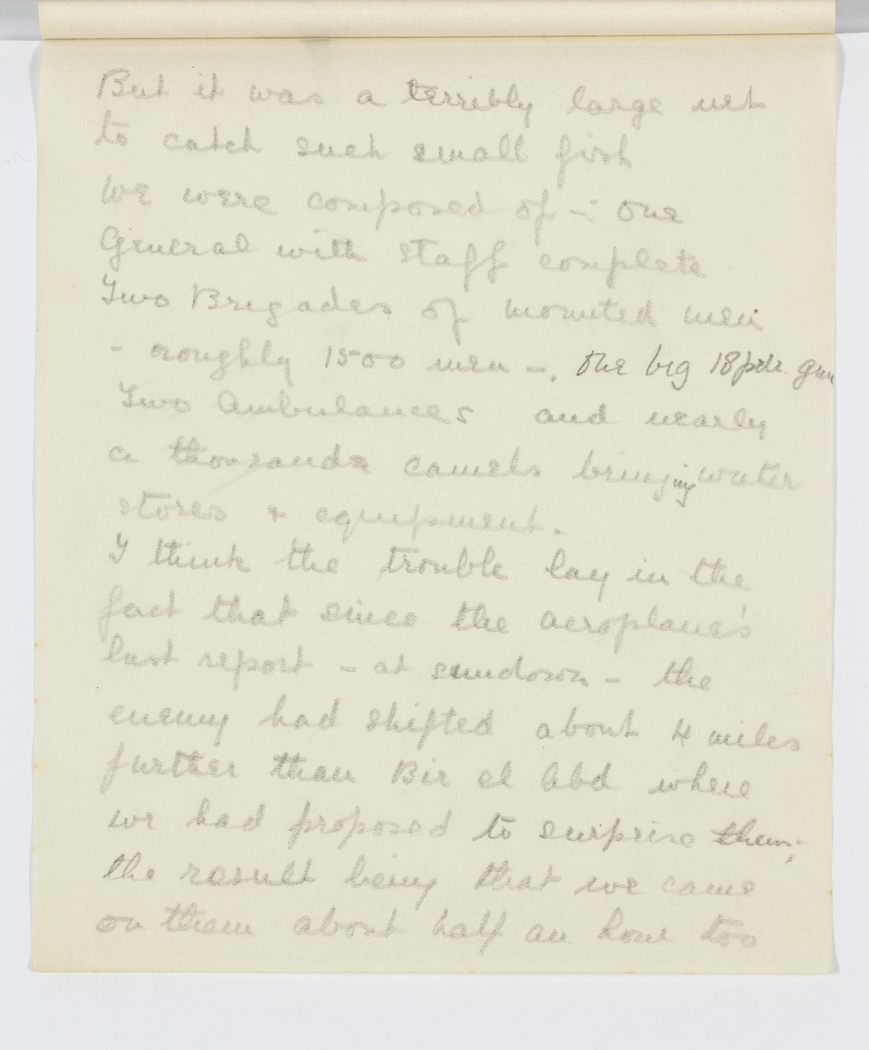 But it was a terribly large net
to catch such small fish
We were composed of -: One
General with staff complete
Two Brigades of mounted men
- roughly 1500 men -. One big 18pdr. gun
Two Ambulances and nearly
a thousand camels bringing water
stores & equipment.
I think the trouble lay in the
fact that since the aeroplane's
last report - at sundown - the
enemy had shifted about 4 miles
further than Bir el Abd where
we had proposed to surprise them;
the result being that we came
on them about half an hour too